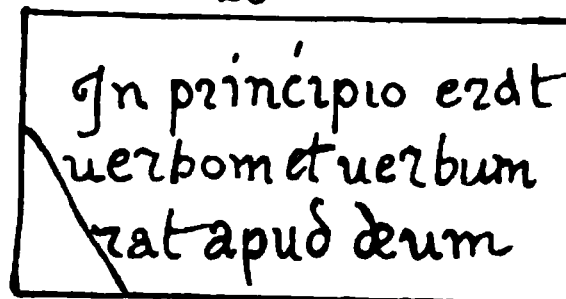 In principio erat
uerbom et uerbum
rat apud deum